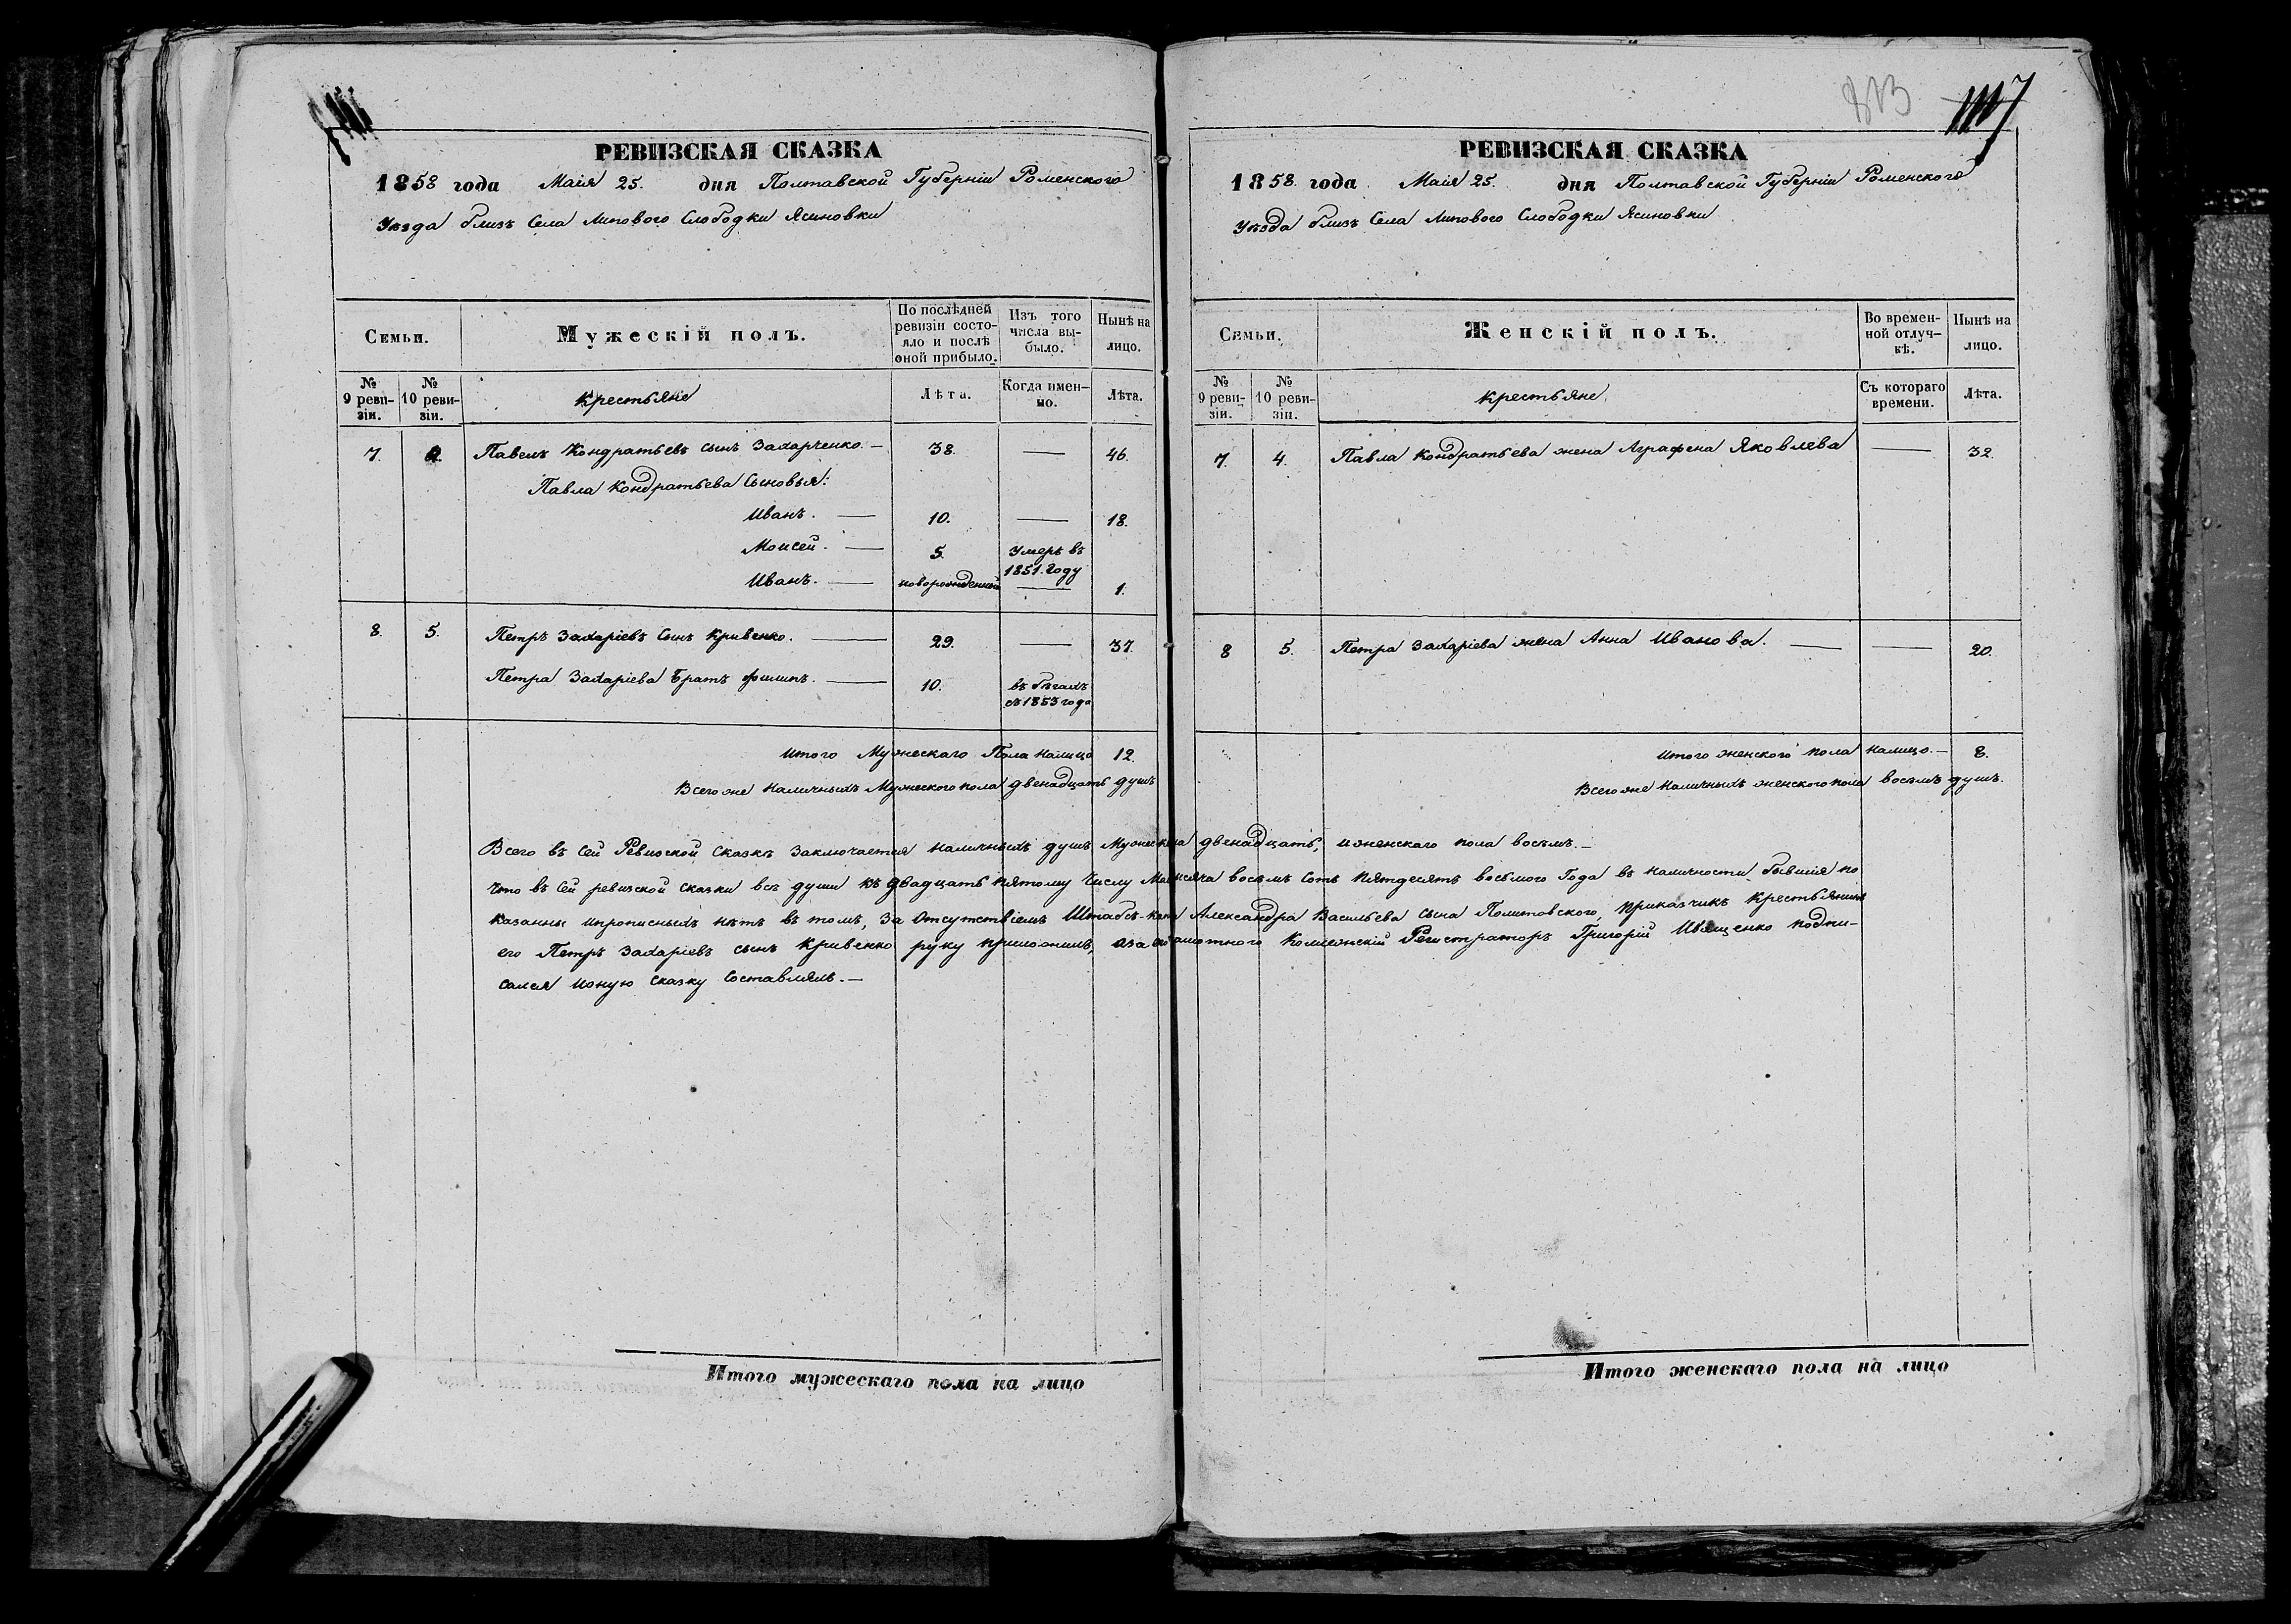 РЕВИЗСКАЯ СКАЗКА
1858 года Маія 25. дня Полтавской Губерніи Роменского
Уѣзда близъ Села Липового Слободки Ясиновки
Семьи.
Мужескій полъ.
По послѣдней ревизіи состояло и послѣ оной прибыло.
Изъ того числа выбыло.
Нынѣ на лицо.
№ 9 ревизіи.
№ 10 ревизіи.
Крестьяне
Лѣта.
Когда именно.
Лѣта.
7. Павелъ Кондратьевъ сынъ Захарченко. — 38. — 46.
Павла Кондратьева Сыновья:
Иванъ. — 10. — 18.
Моисей. — 5. Умеръ въ 1851. Году
Иванъ. — новорожденный — 1.
8. 5. Петръ Захаріевъ Сынъ Кривенко. — 29. — 37.
Петра Захаріева Братъ Филипъ. — 10. въ бѣгахъ съ 1853 года
Итого Мужескаго Пола налицо 12.
Всего же Наличныхъ Мужеского пола двенадцать душъ
РЕВИЗСКАЯ СКАЗКА
1858. года Маія 25. дня Полтавской Губерніи Роменского
Уѣзда близъ Села Липового Слободки Ясиновки
Семьи.
Женскій полъ.
Во временной отлучкѣ.
Нынѣ на лицо.
№ 9 ревизіи.
№ 10 ревизіи.
Крестьяне
Съ котораго времени.
Лѣта.
7. 4. Павла Кондратьева жена Аграфена Яковлева — 32.
8 5. Петра Захаріева жена Анна Иванова. — — 20.
Итого женского пола налицо. — 8.
Всего же Наличныхъ женского пола восемъ душъ.
Всего въ сей Ревизской Сказкѣ Заключается наличныхъ душъ Мужеска двенадцать, иженскаго пола восемъ. —
Что въ сей ревизской сказки всѣ души къ двадцать пятому Числу восемъ Сотъ Пятдесятъ восьмого Года въ наличности бывшія по
казанны ипрописныхъ нѣтъ въ томъ, За Отсутствіемъ Штабсъ-кап Александра Васильева Сына Политовского, приказчикъ Крестьянинъ
его Петръ Захаріевъ сынъ Кривенко руку приложилъ, Колежскій Регистраторъ Григорій Иващенко подпи-
сался ионую Сказку Составлялъ. —
Итого мужескаго пола на лицо
Итого женскаго пола на лицо